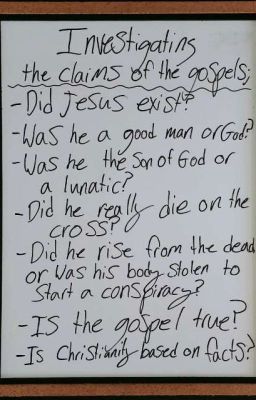 Investigating
the claims of the gospels;
- Did Jesus exist?
- Was he a good man or God?
- Was he the Son of God or
a lunatic?
- Did he really die on the
cross?
- Did he rise from the dead
or was his body stolen to
start a conspiracy?
- Is the gospel true?
- Is Christianity based on facts?